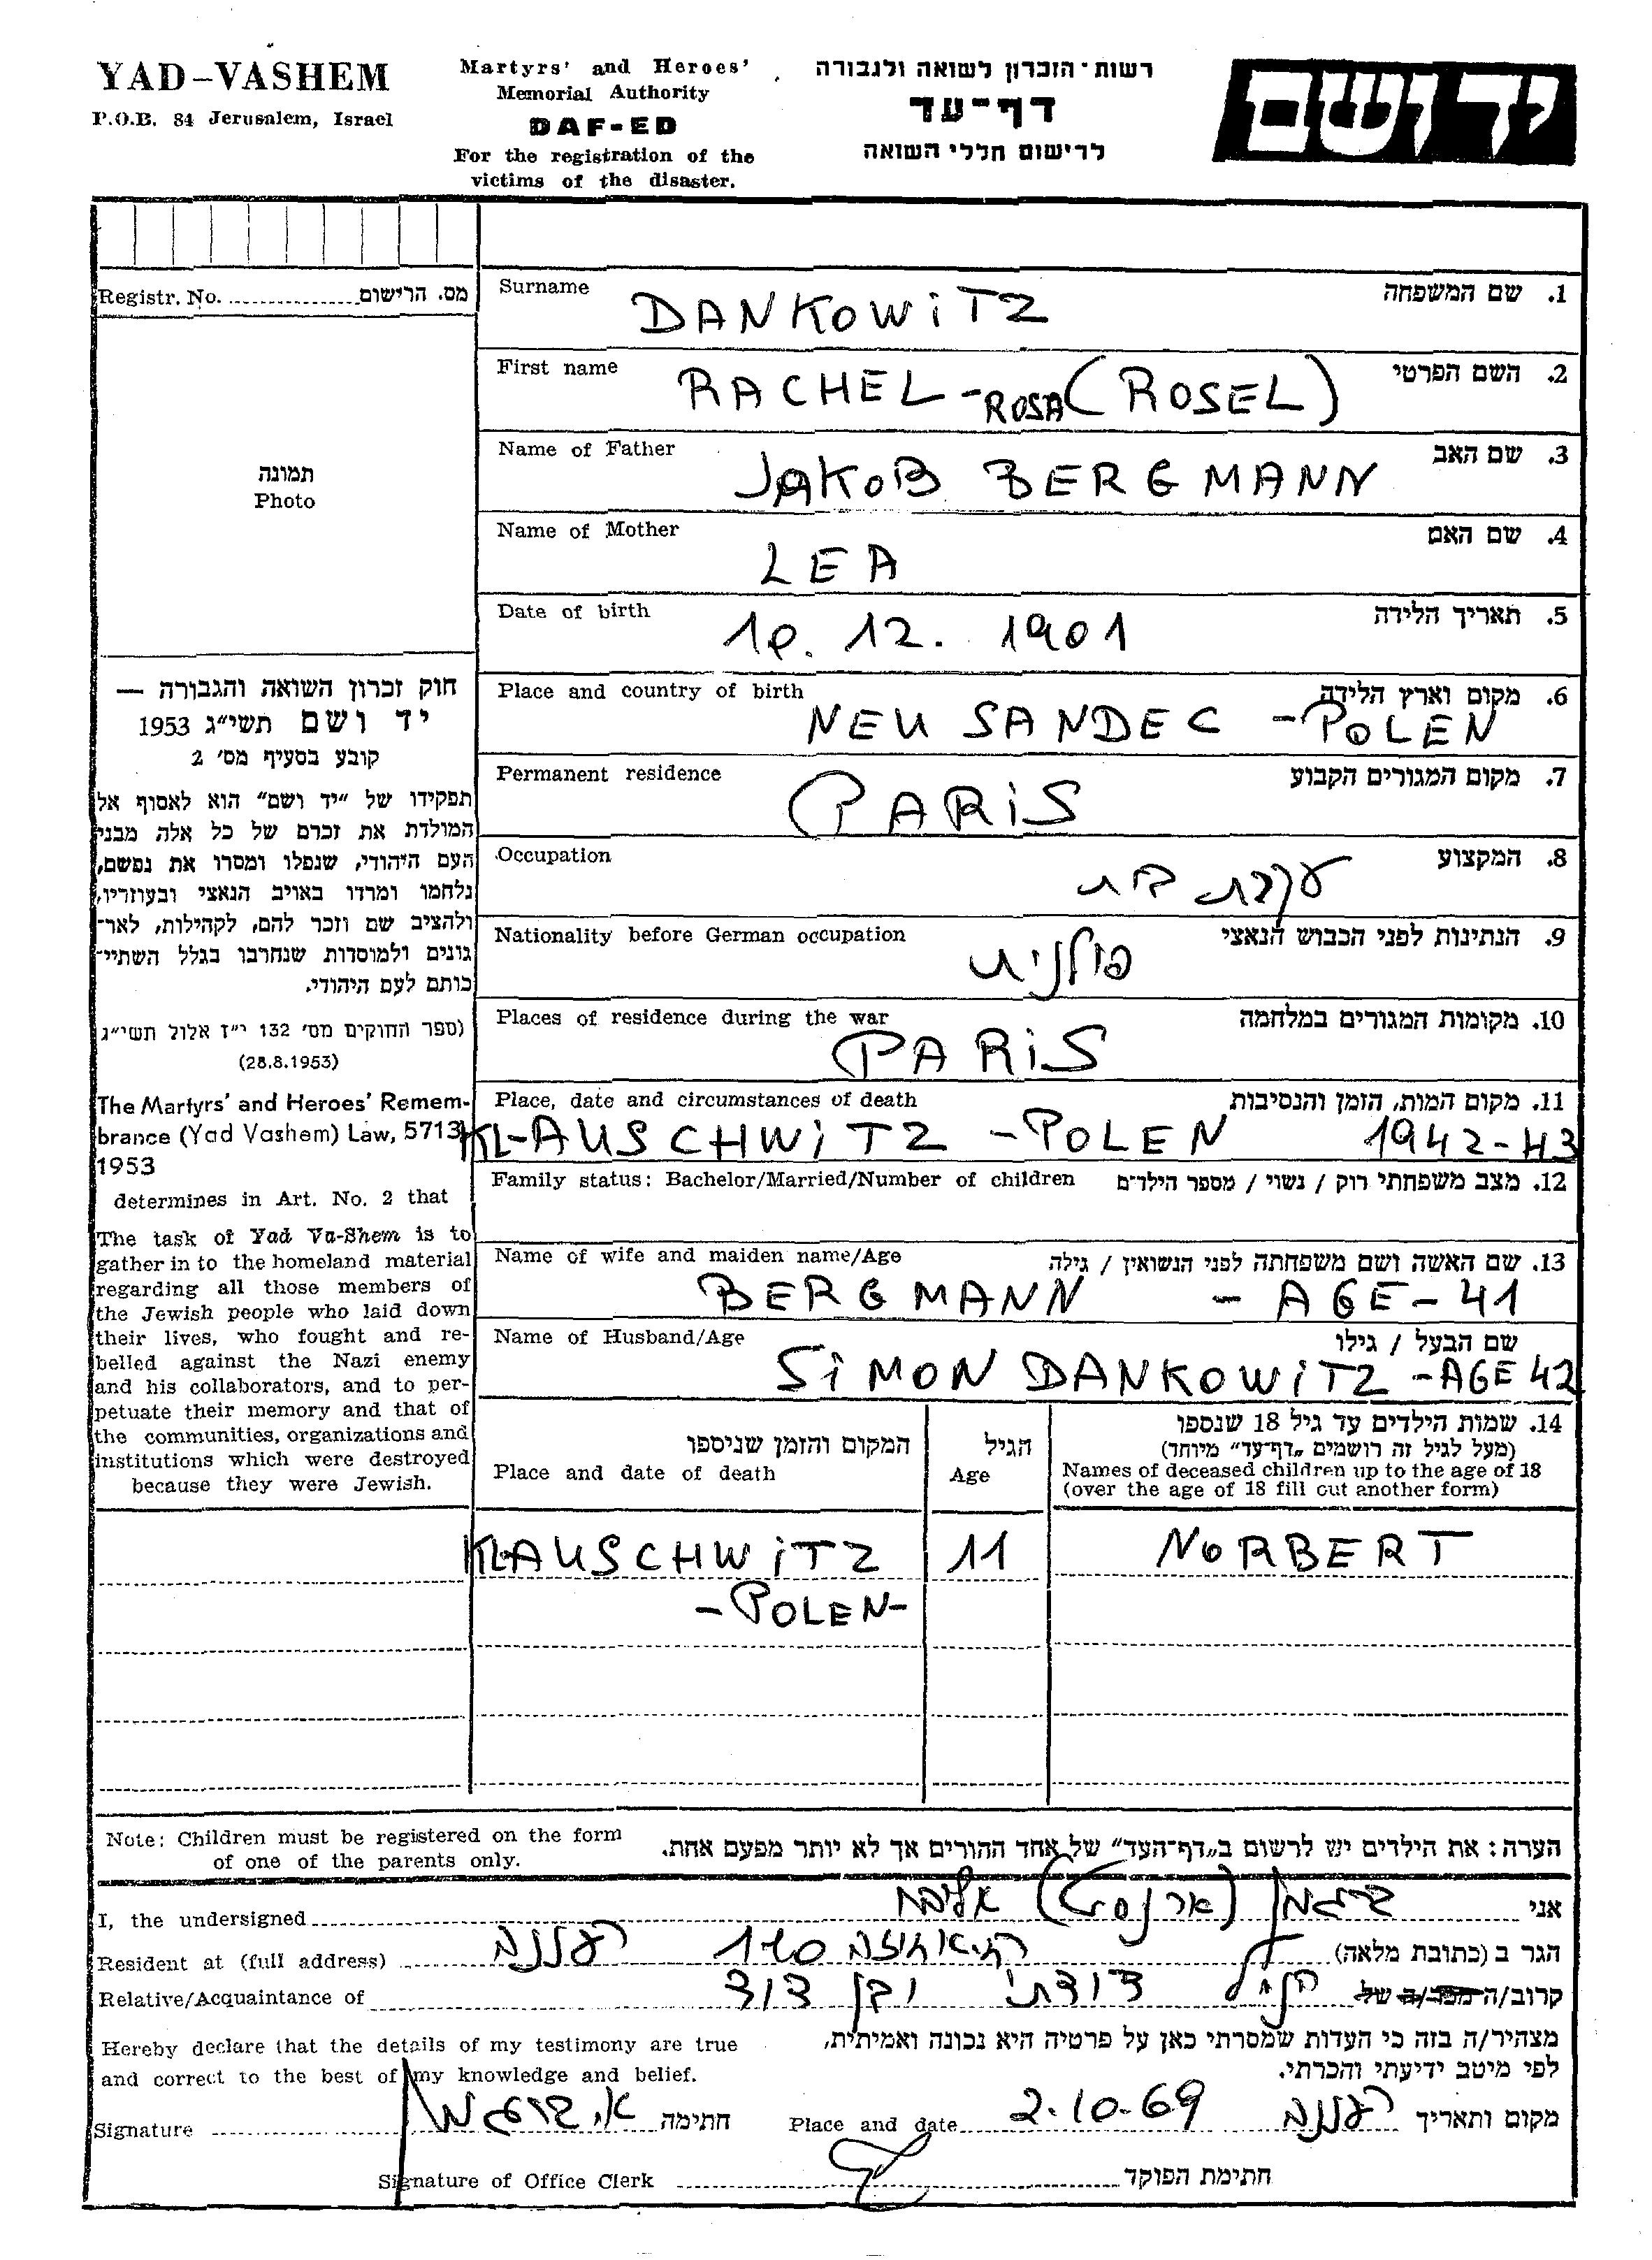 YAD-VASHEM
P.O.B. 84 Jerusalem, Israel
Martyrs' and Heroes'
Memorial Authority
DAF-ED
For the registration of the
victims of the disaster.
רשות-הזכרון לשואה ולגבורה
דף-עד
לרישום חללי השואה
יד ושם
Registr. No. מס. הרישום
תמונה
Photo
חוק זכרון השואה והגבורה —
יד ושם תשי"ג 1953
קובע בסעיף מס' 2
תפקידו של "יד ושם" הוא לאסוף אל
המולדת את זכרם של כל אלה מבני
העם היהודי, שנפלו ומסרו את נפשם,
נלחמו ומרדו באויב הנאצי ובעוזריו,
ולהציב שם וזכר להם, לקהילות, לאר-
גונים ולמוסדות שנחרבו בגלל השתיי-
כותם לעם היהודי.
(ספר החוקים מס' 132 י"ז אלול תשי"ג
(28.8.1953)
The Martyrs' and Heroes' Remem-
brance (Yad Vashem) Law, 5713
1953
determines in Art. No. 2 that
The task of Yad Va-Shem is to
gather in to the homeland material
regarding all those members of
the Jewish people who laid down
their lives, who fought and re-
belled against the Nazi enemy
and his collaborators, and to per-
petuate their memory and that of
the communities, organizations and
institutions which were destroyed
because they were Jewish.
Surname 1. שם המשפחה
DANKOWiTZ
First name 2. השם הפרטי
RACHEL - ROSA (ROSEL)
Name of Father 3. שם האב
JAKOB BERGMANN
Name of Mother 4. שם האם
LEA
Date of birth 5. תאריך הלידה
10. 12. 1901
Place and country of birth 6. מקום וארץ הלידה
NEU SANDEC - POLEN
Permanent residence 7. מקום המגורים הקבוע
PARiS
Occupation 8. המקצוע
עקרת בית
Nationality before German occupation 9. הנתינות לפני הכבוש הנאצי
פולנית
Places of residence during the war 10. מקומות המגורים במלחמה
PARiS
Place, date and circumstances of death 11. מקום המות, הזמן והנסיבות
KL-AUSCHWiTZ - POLEN 1942-43
Family status: Bachelor/Married/Number of children 12. מצב משפחתי רוק / נשוי / מספר הילדים
Name of wife and maiden name/Age 13. שם האשה ושם משפחתה לפני הנשואין / גילה
BERGMANN - AGE - 41
Name of Husband/Age שם הבעל / גילו
SiMON DANKOWiTZ - AGE 42
14. שמות הילדים עד גיל 18 שנספו
(מעל לגיל זה רושמים "דף-עד" מיוחד)
Names of deceased children up to the age of 18
(over the age of 18 fill out another form)
הגיל
Age
המקום והזמן שניספו
Place and date of death
KL-AUSCHWiTZ 11 NORBERT
- POLEN -
Note: Children must be registered on the form
of one of the parents only.
הערה: את הילדים יש לרשום ב"דף-העד" של אחד ההורים אך לא יותר מפעם אחת.
I, the undersigned ברגמן (ארנסט) אני
Resident at (full address) רעננה הגר ב (כתובת מלאה)
Relative/Acquaintance of דודתי ובן דוד קרוב/ה מכר/ה של
Hereby declare that the details of my testimony are true
and correct to the best of my knowledge and belief.
מצהיר/ה בזה כי העדות שמסרתי כאן על פרטיה היא נכונה ואמיתית,
לפי מיטב ידיעתי והכרתי.
Signature א. ברגמן חתימה Place and date 2.10.69 רעננה מקום ותאריך
Signature of Office Clerk חתימת הפוקד